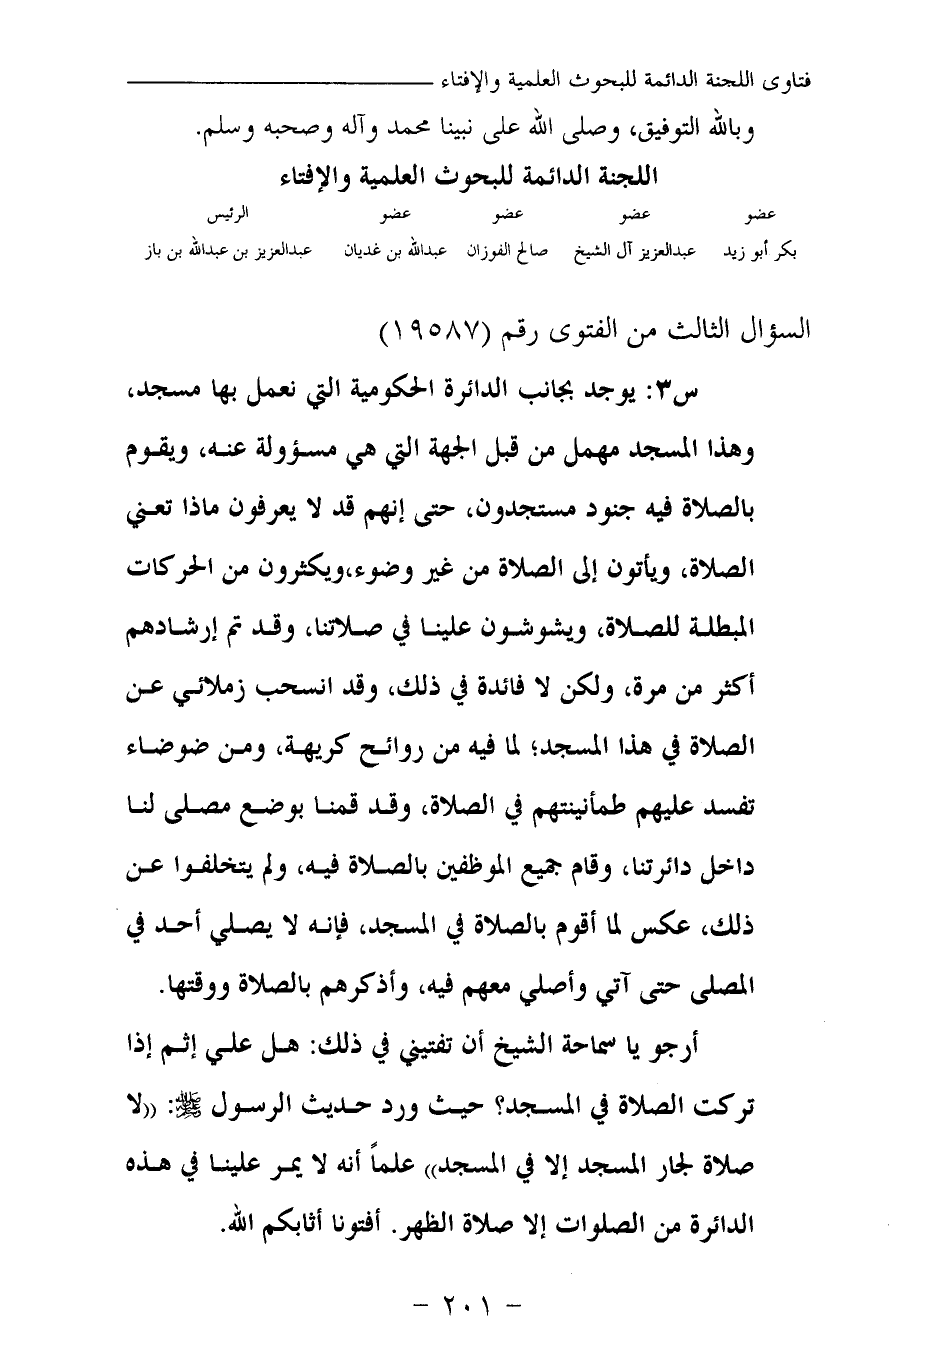 فتاوى اللجنة الدائمة للبحوث العلمية والإفتاء
وبالله التوفيق، وصلى الله على نبينا محمد وآله وصحبه وسلم.
اللجنة الدائمة للبحوث العلمية والإفتاء
عضو عضو عضو عضو الرئيس
بكر أبو زيد عبدالعزيز آل الشيخ صالح الفوزان عبدالله بن غديان عبدالعزيز بن عبدالله بن باز
السؤال الثالث من الفتوى رقم (١٩٥٨٧)
س٣: يوجد بجانب الدائرة الحكومية التي نعمل بها مسجد،
وهذا المسجد مهمل من قبل الجهة التي هي مسؤولة عنه، ويقوم
بالصلاة فيه جنود مستجدون، حتى إنهم قد لا يعرفون ماذا تعني
الصلاة، ويأتون إلى الصلاة من غير وضوء،ويكثرون من الحركات
المبطلة للصلاة، ويشوشون علينا في صلاتنا، وقد تم إرشادهم
أكثر من مرة، ولكن لا فائدة في ذلك، وقد انسحب زملائي عن
الصلاة في هذا المسجد؛ لما فيه من روائح كريهة، ومن ضوضاء
تفسد عليهم طمأنينتهم في الصلاة، وقد قمنا بوضع مصلى لنا
داخل دائرتنا، وقام جميع الموظفين بالصلاة فيه، ولم يتخلفوا عن
ذلك، عكس لما أقوم بالصلاة في المسجد، فإنه لا يصلي أحد في
المصلى حتى آتي وأصلي معهم فيه، وأذكرهم بالصلاة ووقتها.
أرجو يا سماحة الشيخ أن تفتيني في ذلك: هل علي إثم إذا
تركت الصلاة في المسجد؟ حيث ورد حديث الرسول ﷺ: ((لا
صلاة لجار المسجد إلا في المسجد)) علماً أنه لا يمر علينا في هذه
الدائرة من الصلوات إلا صلاة الظهر. أفتونا أثابكم الله.
- ٢٠١ -